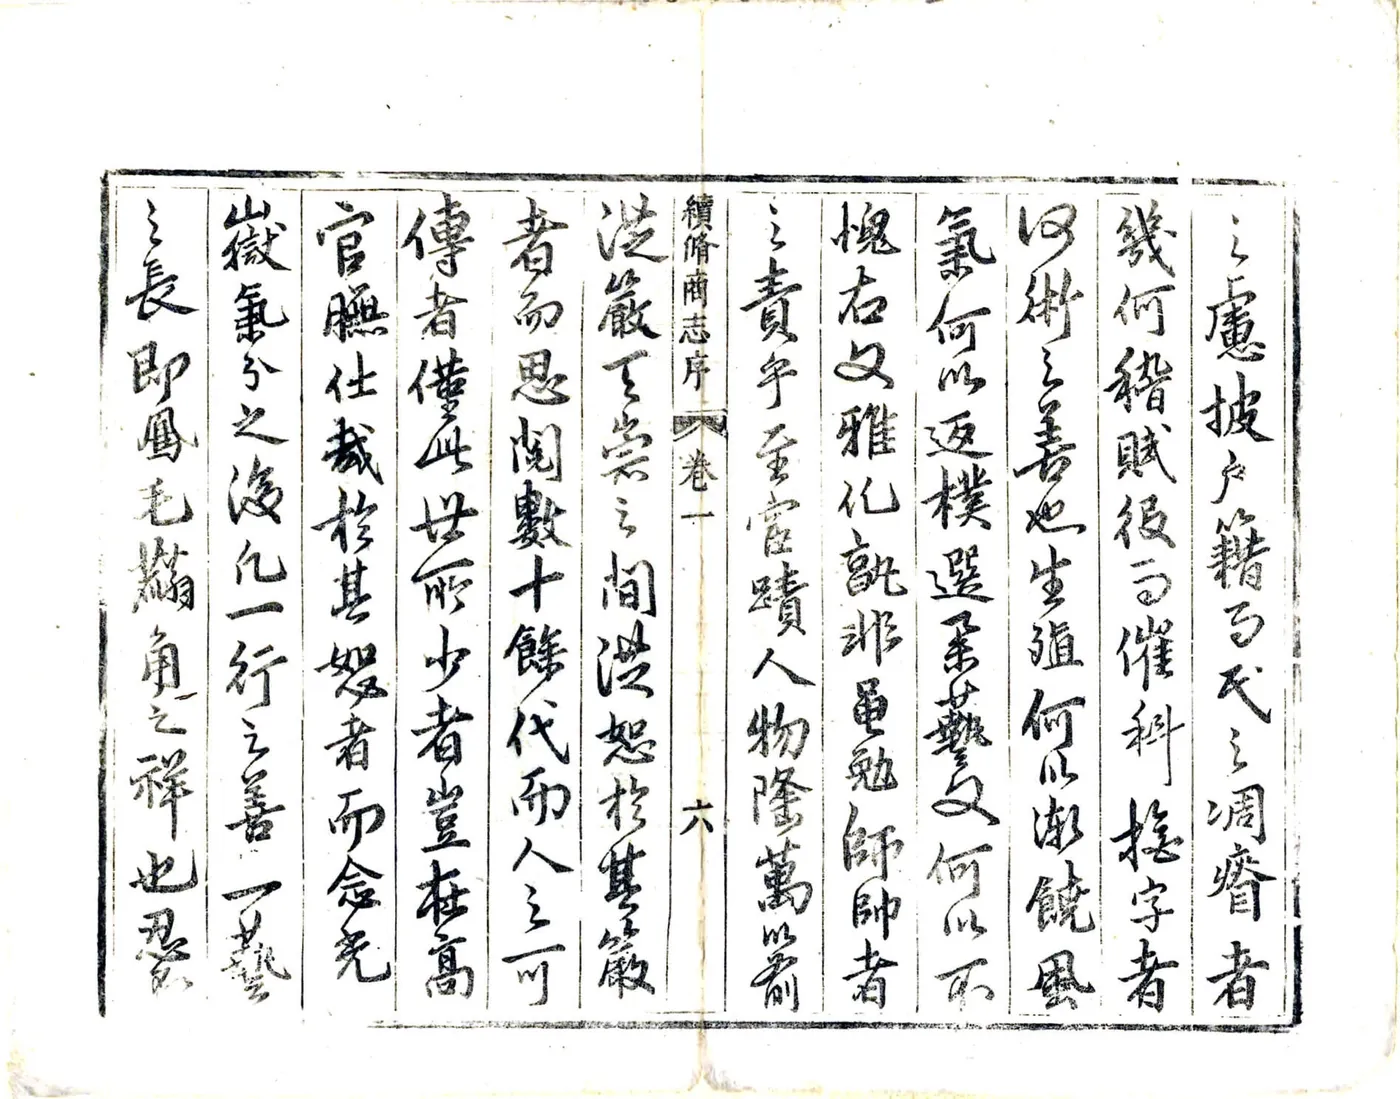 之慮披戶籍而民之凋瘠者
幾何稽賦役而催科撫字者
何術之善也生殖何以漸饒風
氣何以返樸選柔藝文何以不
愧右文雅化孰非黽勉師帥者
之責乎至宦蹟人物隆萬以前
續脩商志序 卷一 六
洪巖天崇之間洪恕於其巖
者而思閱數十餘代而人之可
傳者僅此世所少者豈在高
官膴仕哉於其恕者而念光
嶽氣分之後凡一行之善一藝
之長即鳳毛麟角之祥也忍